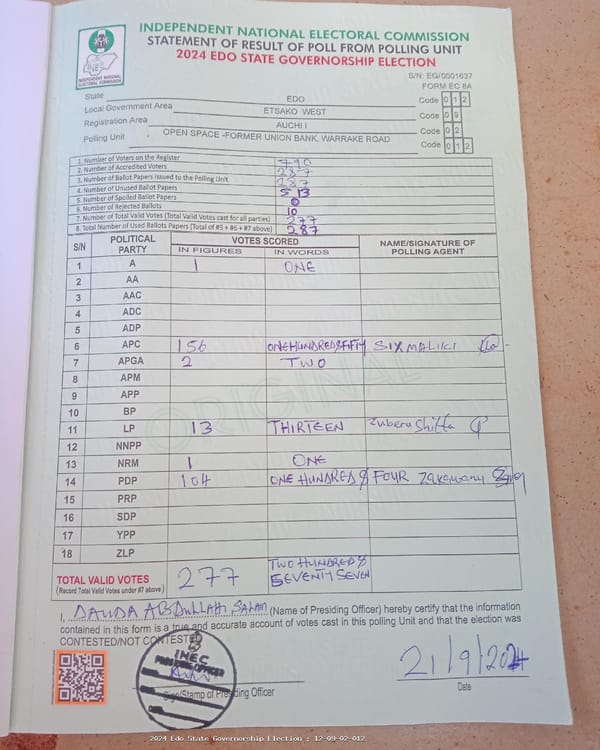 INDEPENDENT NATIONAL ELECTORAL COMMISSION
STATEMENT OF RESULT OF POLL FROM POLLING UNIT
2024 EDO STATE GOVERNORSHIP ELECTION
INEC
INDEPENDENT NATIONAL ELECTORAL COMMISSION
S/N: EG/0001637
FORM EC 8A
State EDO Code 0 1 2
Local Government Area ETSAKO WEST Code 0 9
Registration Area AUCHI I Code 0 2
Polling Unit OPEN SPACE -FORMER UNION BANK, WARRAKE ROAD Code 0 1 2
1. Number of Voters on the Register 790
2. Number of Accredited Voters 287
3. Number of Ballot Papers Issued to the Polling Unit
4. Number of Unused Ballot Papers 513
5. Number of Spoiled Ballot Papers 0
6. Number of Rejected Ballots 10
7. Number of Total Valid Votes (Total Valid Votes cast for all parties) 277
8. Total Number of Used Ballots Papers (Total of #5 + #6 + #7 above) 287
S/N POLITICAL PARTY VOTES SCORED NAME/SIGNATURE OF POLLING AGENT
IN FIGURES IN WORDS
1 A 1 ONE
2 AA
3 AAC
4 ADC
5 ADP
6 APC 156 ONE HUNDRED & FIFTY SIX MALIKI
7 APGA 2 TWO
8 APM
9 APP
10 BP
11 LP 13 THIRTEEN Zuberu Shitta
12 NNPP
13 NRM 1 ONE
14 PDP 104 ONE HUNDRED & FOUR
15 PRP
16 SDP
17 YPP
18 ZLP
ORIGINAL
TOTAL VALID VOTES 277 TWO HUNDRED & SEVENTY SEVEN
(Record Total Valid Votes under #7 above)
I, DAUDA ABDULLAH SALAM (Name of Presiding Officer) hereby certify that the information
contained in this form is a true and accurate account of votes cast in this polling Unit and that the election was
CONTESTED/NOT CONTESTED
INEC
PRESIDING OFFICER
Sign/Stamp of Presiding Officer
21/9/2024
Date
2024 Edo State Governorship Election : 12-09-02-012